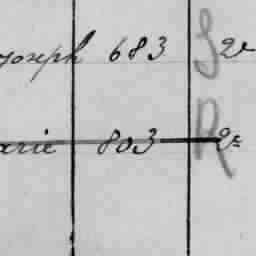 Joseph 683 S 2e
arie 803 R 2e